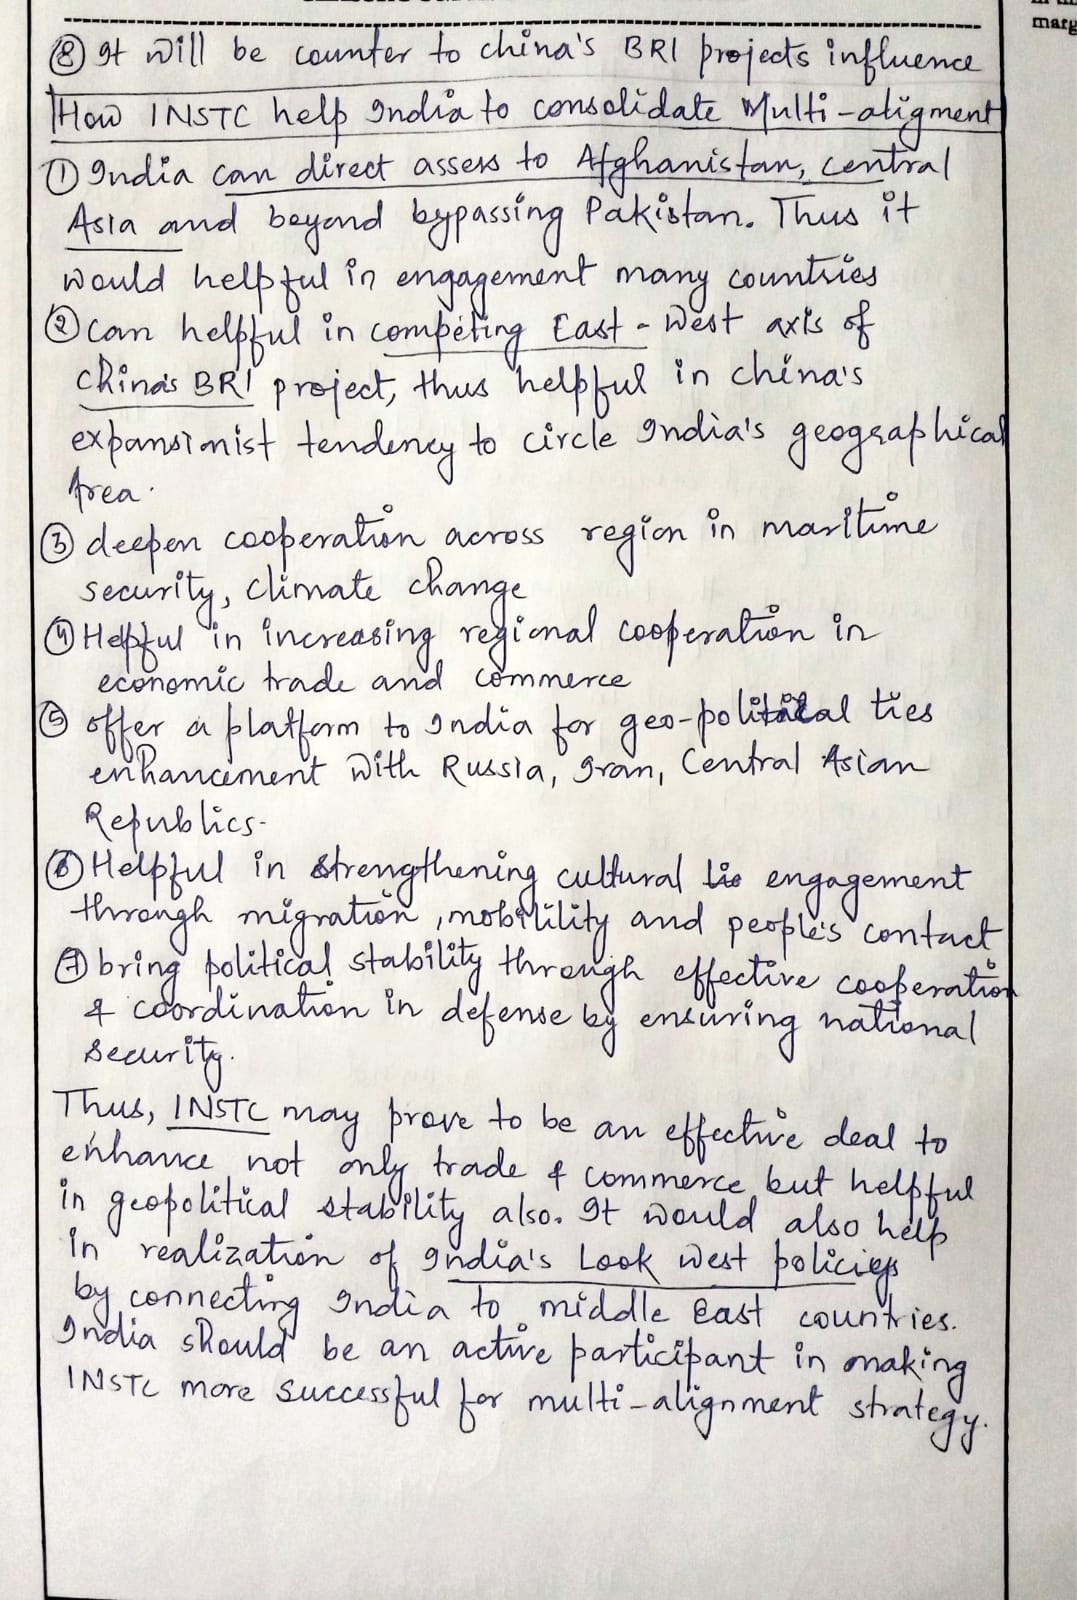 ⑧ It will be counter to china's BRI projects influence
How INSTC help India to consolidate Multi-aligment
① India can direct assess to Afghanistan, central
Asia and beyond bypassing Pakistan. Thus it
would helpful in engagement many countries
② can helpful in competing East-West axis of
China's BRI project, thus helpful in china's
expansionist tendency to circle India's geographical
Area.
③ deepen cooperation across region in maritime
security, climate change
④ Helpful in increasing regional cooperation in
economic trade and commerce
⑤ offer a platform to India for geo-political ties
enhancement with Russia, Iran, Central Asian
Republics.
⑥ Helpful in strengthening cultural tie engagement
through migration, mobilility and people's contact
⑦ bring political stability through effective cooperation
& coordination in defense by ensuring national
security.
Thus, INSTC may prove to be an effective deal to
enhance not only trade & commerce but helpful
in geopolitical stability also. It would also help
in realization of India's Look west policies
by connecting India to middle East countries.
India should be an active participant in making
INSTC more successful for multi-alignment strategy.
marg